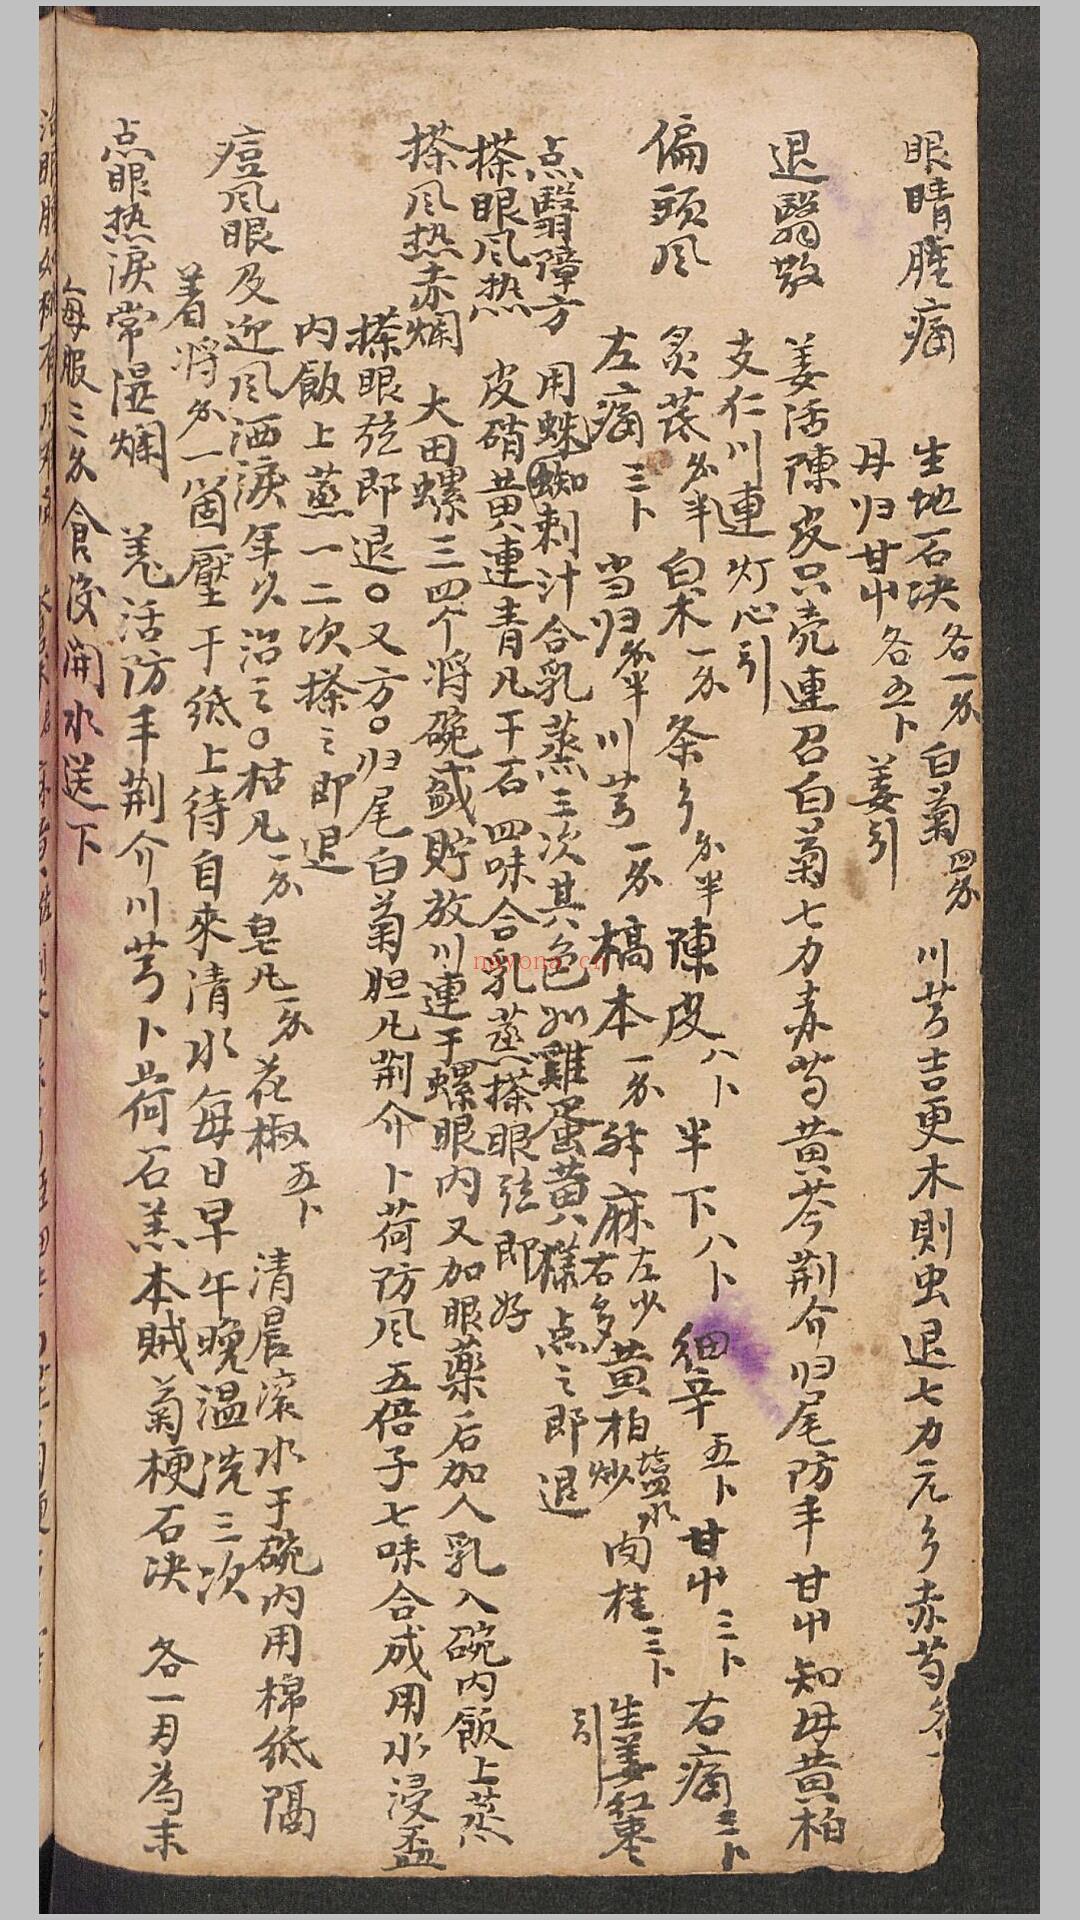 眼睛腫痛 生地石决各一分白菊四分 川芎吉更木則虫退七力元彡赤芍各一
丹归甘艸各五卜姜引
退翳散 姜活陳皮只壳連召白菊七力赤芍黄芩荆介归尾防丰甘艸知母黄柏
支仁川連灯心引
偏頭风 炙芪分半白术一分条彡分半陳皮八卜半下八卜細辛五卜甘艸三卜右痛三卜
左痛三卜当归分半川芎一分槁本一分升麻左少右多黄柏塩水炒肉桂三卜生姜紅棗引
点翳障方 用蛛蜘刺汁合乳蒸三次其色如雞蛋黄樣点之即退
搽眼风热 皮硝黄連青凡干石四味合乳蒸搽眼弦即好
搽风热赤爛 大田螺三四个将碗盛貯放川連于螺眼内又加眼藥后加人乳入碗内飯上蒸
搽眼弦即退○又方○归尾白菊胆凡荆介卜荷防风五倍子七味合成用水浸盃
内飯上蒸一二次搽之即退
痘风眼及迎风洒淚年久治之○枯凡一分皂凡一分花椒五卜 清晨滚水于碗内用棉紙隔
着将分一箇壓于紙上待自來清水每日早午晚温洗三次
点眼热淚常湿爛 羌活防丰荆介川芎卜荷石羔木賊菊梗石决 各一月為末
每服三分食後開水送下
nayona.cn